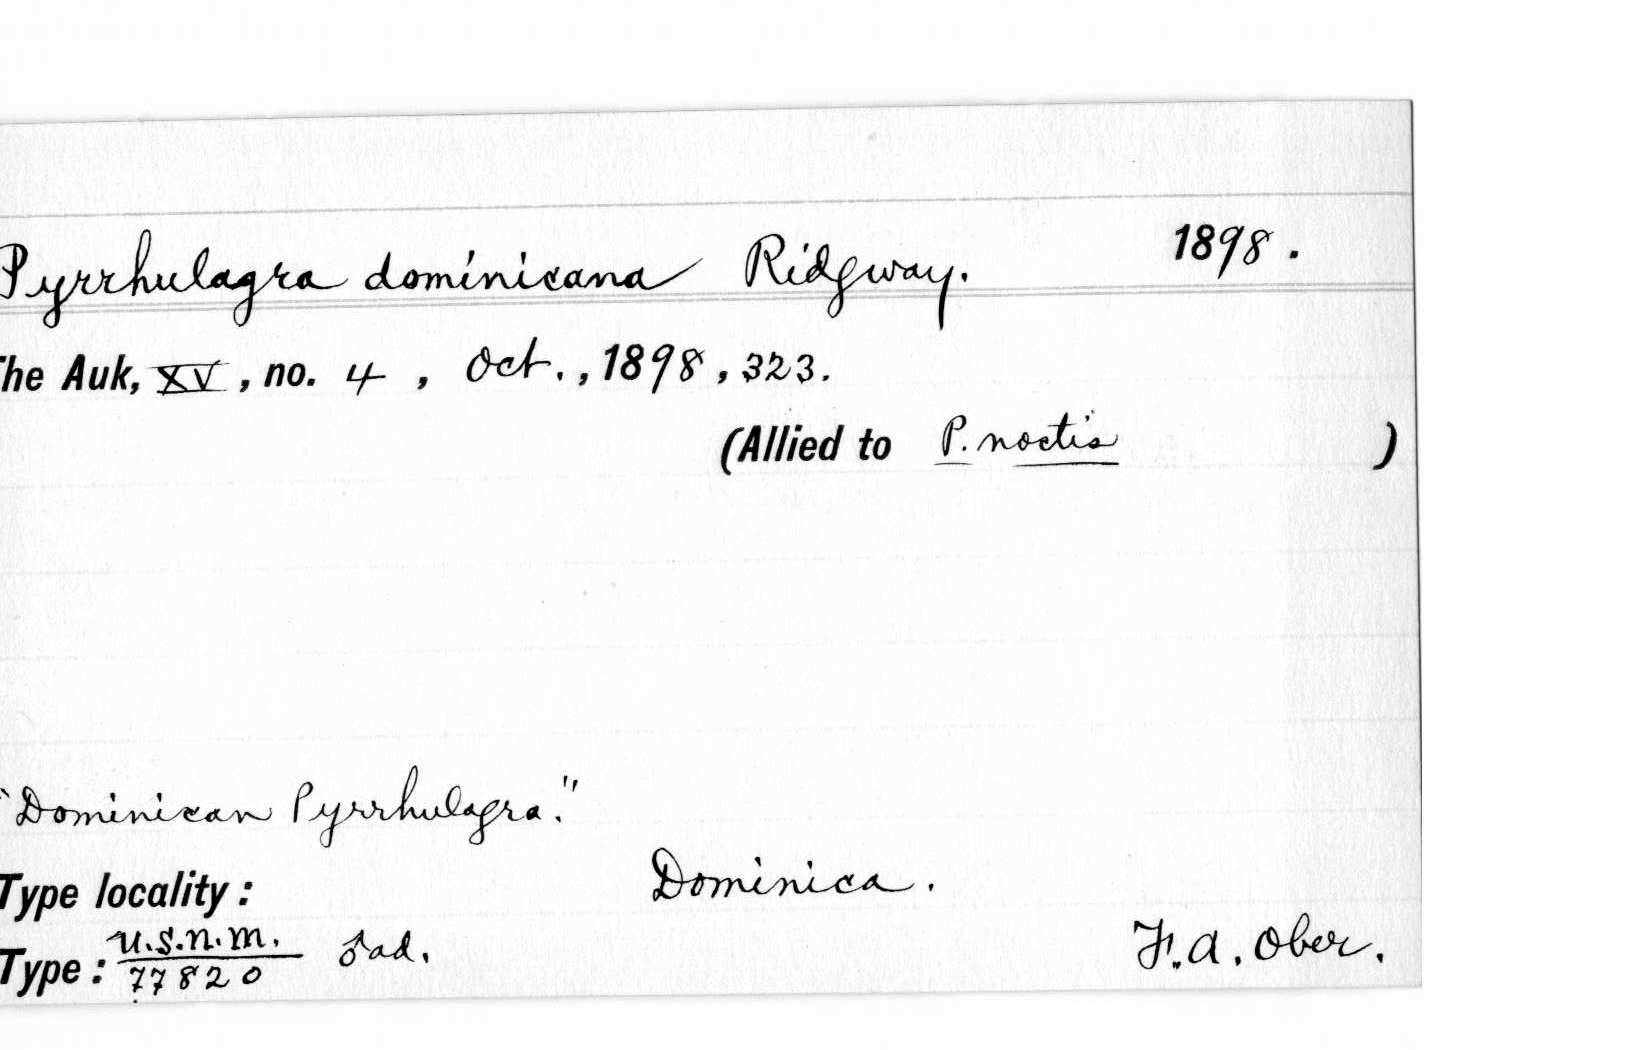 Pyrrhulagra dominicana Ridgway. 1898.
The Auk, XV, no. 4, Oct., 1898, 323.
(Allied to P. noctis )
"Dominican Pyrrhulagra."
Type locality: Dominica.
Type: U.S.N.M. 77820 ♂ ad. F. A. Ober.